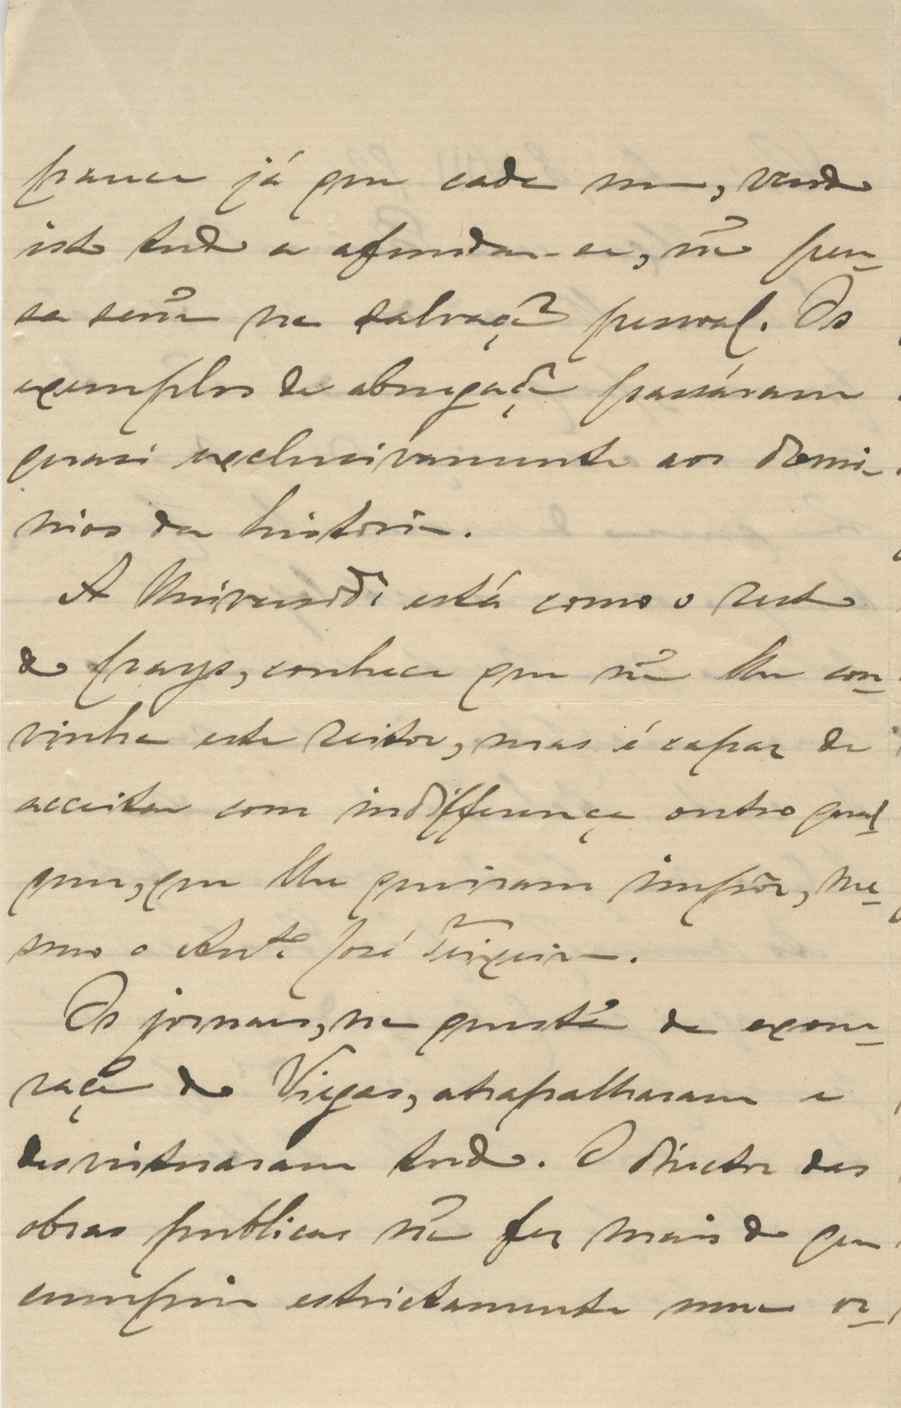 franca já que cada um, vendo
isto tudo a afundar-se, nã pen-
sa senã na salvaçã pessoal. Os
exemplos de abnegaçã passáram
quasi exclusivamente aos domi-
nios da historia.
A Universidᵉ está como o resto
do pays, conhece que nã lhe con-
vinha este reitor, mas é capaz de
acceitar com indifferença outro qual-
quer, que lhe queiram impôr, me-
smo o Antº José Teixeira.
Os jornaes, na questã da exone-
raçã do Viegas, atrapalharam e
desvirtuaram tudo. O director das
obras publicas nã fez mais do que
cumprir estrictamente uma or-